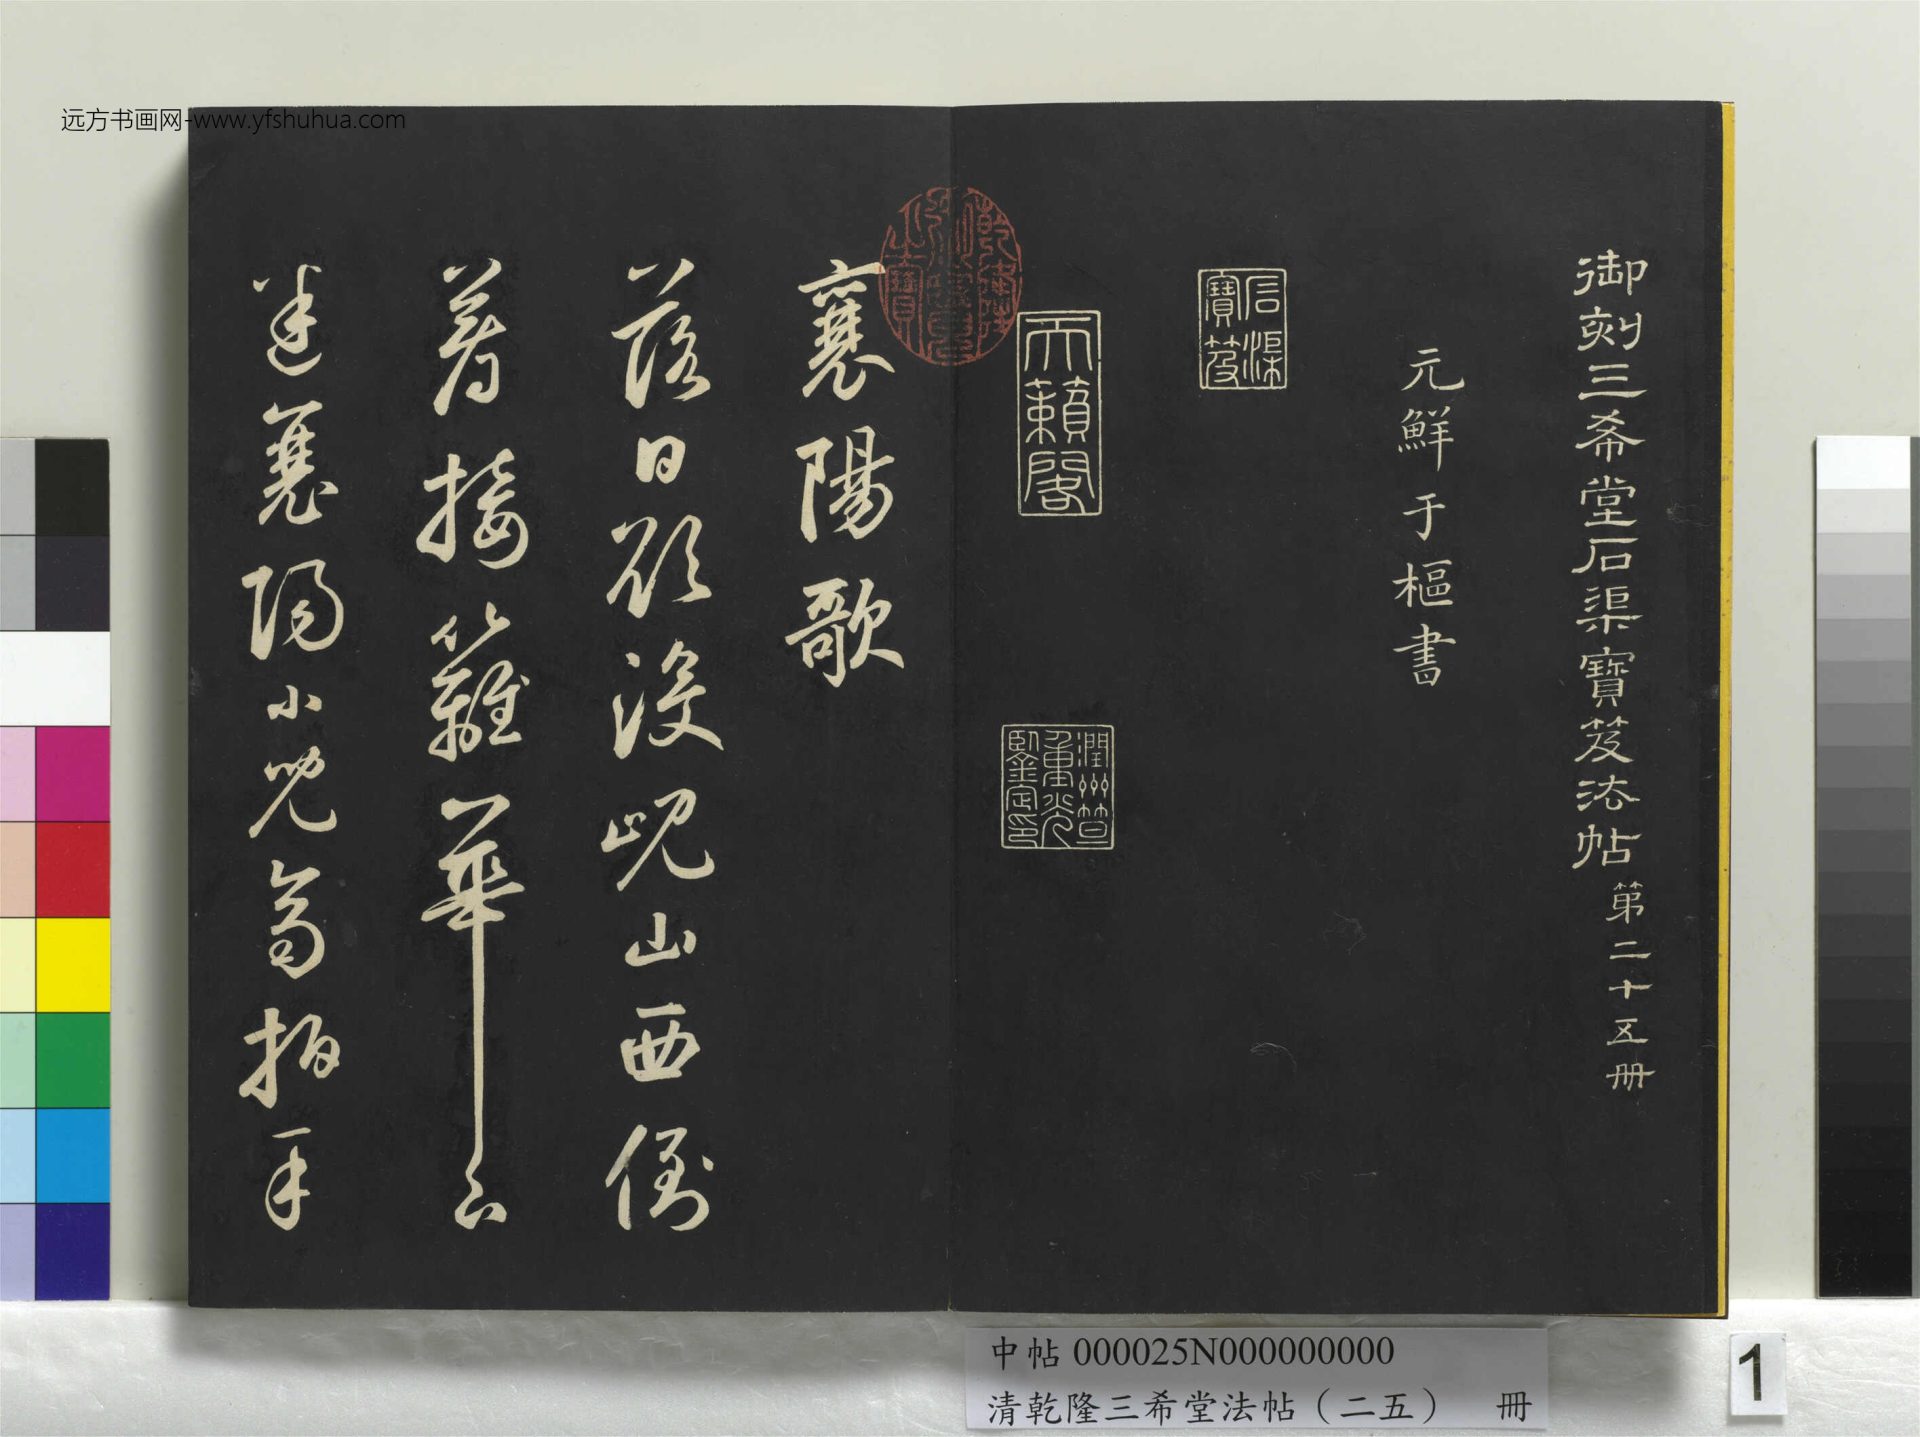 远方书画网-www.yfshuhua.com
御刻三希堂石渠寶笈法帖第二十五册
元鮮于樞書
石渠寶笈
天籟閣
潤州笪重光鑒定印
乾隆御覽之寶
襄陽歌
落日欲没峴山西倒
著接籬華下
迷襄陽小兒齊拍手
中帖 000025N000000000
清乾隆三希堂法帖（二五） 冊
1